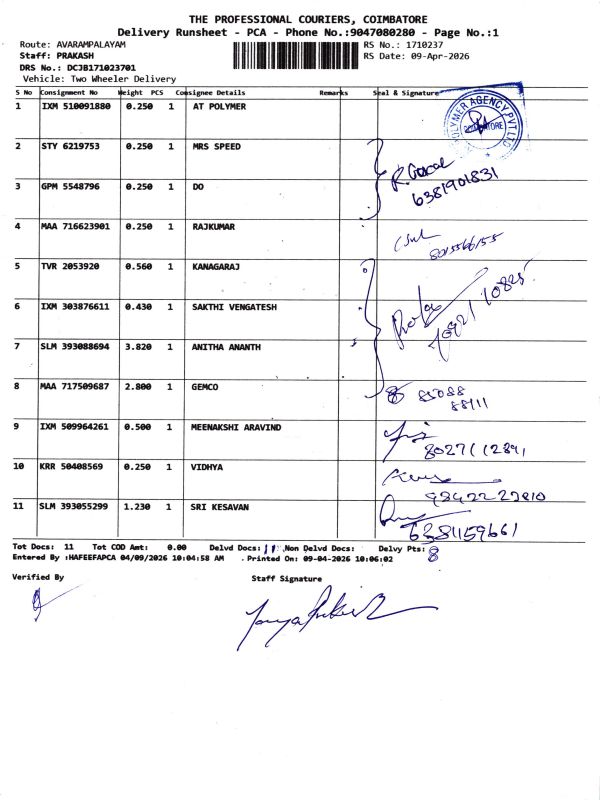 THE PROFESSIONAL COURIERS, COIMBATORE
Delivery Runsheet - PCA - Phone No.:9047080280 - Page No.:1
Route: AVARAMPALAYAM RS No.: 1710237
Staff: PRAKASH RS Date: 09-Apr-2026
DRS No.: DCJB171023701
Vehicle: Two Wheeler Delivery
S No Consignment No Weight PCS Consignee Details Remarks Seal & Signature
1 IXM 510091880 0.250 1 AT POLYMER
POLYMER AGENCY PVT LTD
2 STY 6219753 0.250 1 MRS SPEED
3 GPM 5548796 0.250 1 DO
6381901831
4 MAA 716623901 0.250 1 RAJKUMAR
5 TVR 2053920 0.560 1 KANAGARAJ
6 IXM 303876611 0.430 1 SAKTHI VENGATESH
7 SLM 393088694 3.820 1 ANITHA ANANTH
8 MAA 717509687 2.800 1 GEMCO
85088
88111
9 IXM 509964261 0.500 1 MEENAKSHI ARAVIND
10 KRR 50408569 0.250 1 VIDHYA
11 SLM 393055299 1.230 1 SRI KESAVAN
6381159661
Tot Docs: 11 Tot COD Amt: 0.00 Delvd Docs: 11 Non Delvd Docs: Delvy Pts: 8
Entered By :HAFEEFAPCA 04/09/2026 10:04:58 AM Printed On: 09-04-2026 10:06:02
Verified By Staff Signature